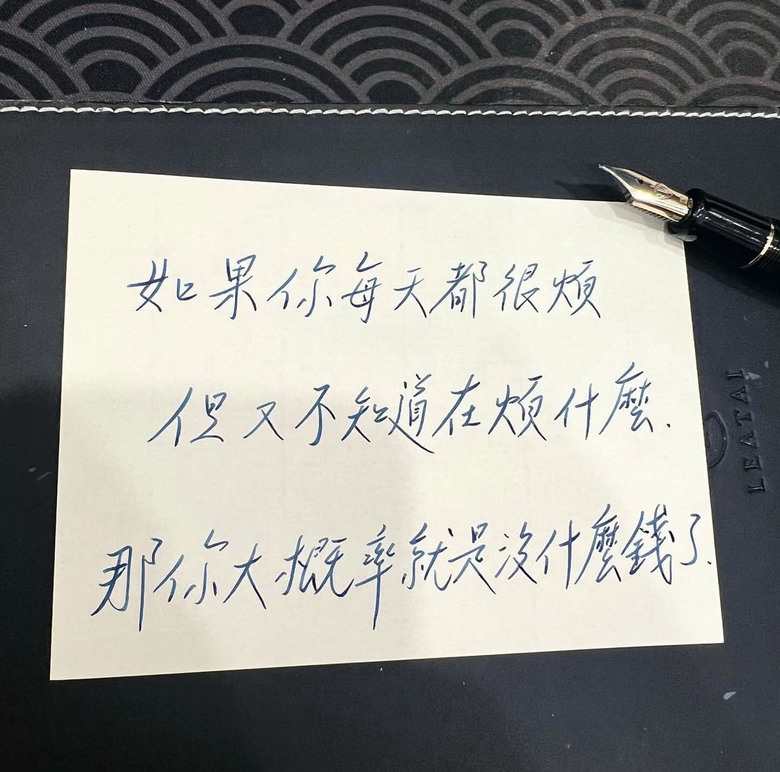 如果你每天都很煩
但又不知道在煩什麼.
那你大概率就是沒什麼錢了.
LEATAI